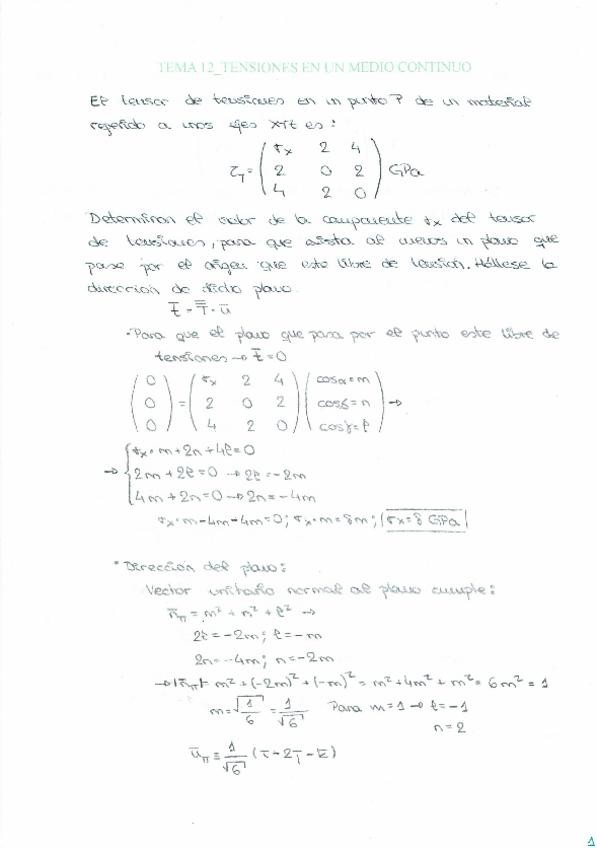 TEMA 12_TENSIONES EN UN MEDIO CONTINUO
El tensor de tensiones en un punto P de un material
referido a unos ejes xyz es:
τ_T = ( σx 2 4
2 0 2
4 2 0 ) GPa
Determinar el valor de la componente σx del tensor
de tensiones, para que exista al menos un plano que
pase por el origen que este libre de tension. Hállese la
dirección de dicho plano.
t̄ = T̿ · ū
• Para que el plano que pasa por el punto este libre de
tensiones → t̄ = 0
( 0 ) = ( σx 2 4 ) ( cosα = m ) →
( 0 ) ( 2 0 2 ) ( cosβ = n )
( 0 ) ( 4 2 0 ) ( cosγ = l )
→ { σx·m + 2n + 4l = 0
2m + 2l = 0 → 2l = -2m
4m + 2n = 0 → 2n = -4m
σx·m - 4m - 4m = 0; σx·m = 8m; σx = 8 GPa
• Dirección del plano:
Vector unitario normal al plano cumple:
n̄π = m² + n² + l² →
2l = -2m; l = -m
2n = -4m; n = -2m
→ |n̄π| = m² + (-2m)² + (-m)² = m² + 4m² + m² = 6m² = 1
m = √(1/6) = 1/√6 Para m = 1 → l = -1
n = 2
ūπ = 1/√6 (ī - 2j̄ - k̄)
1